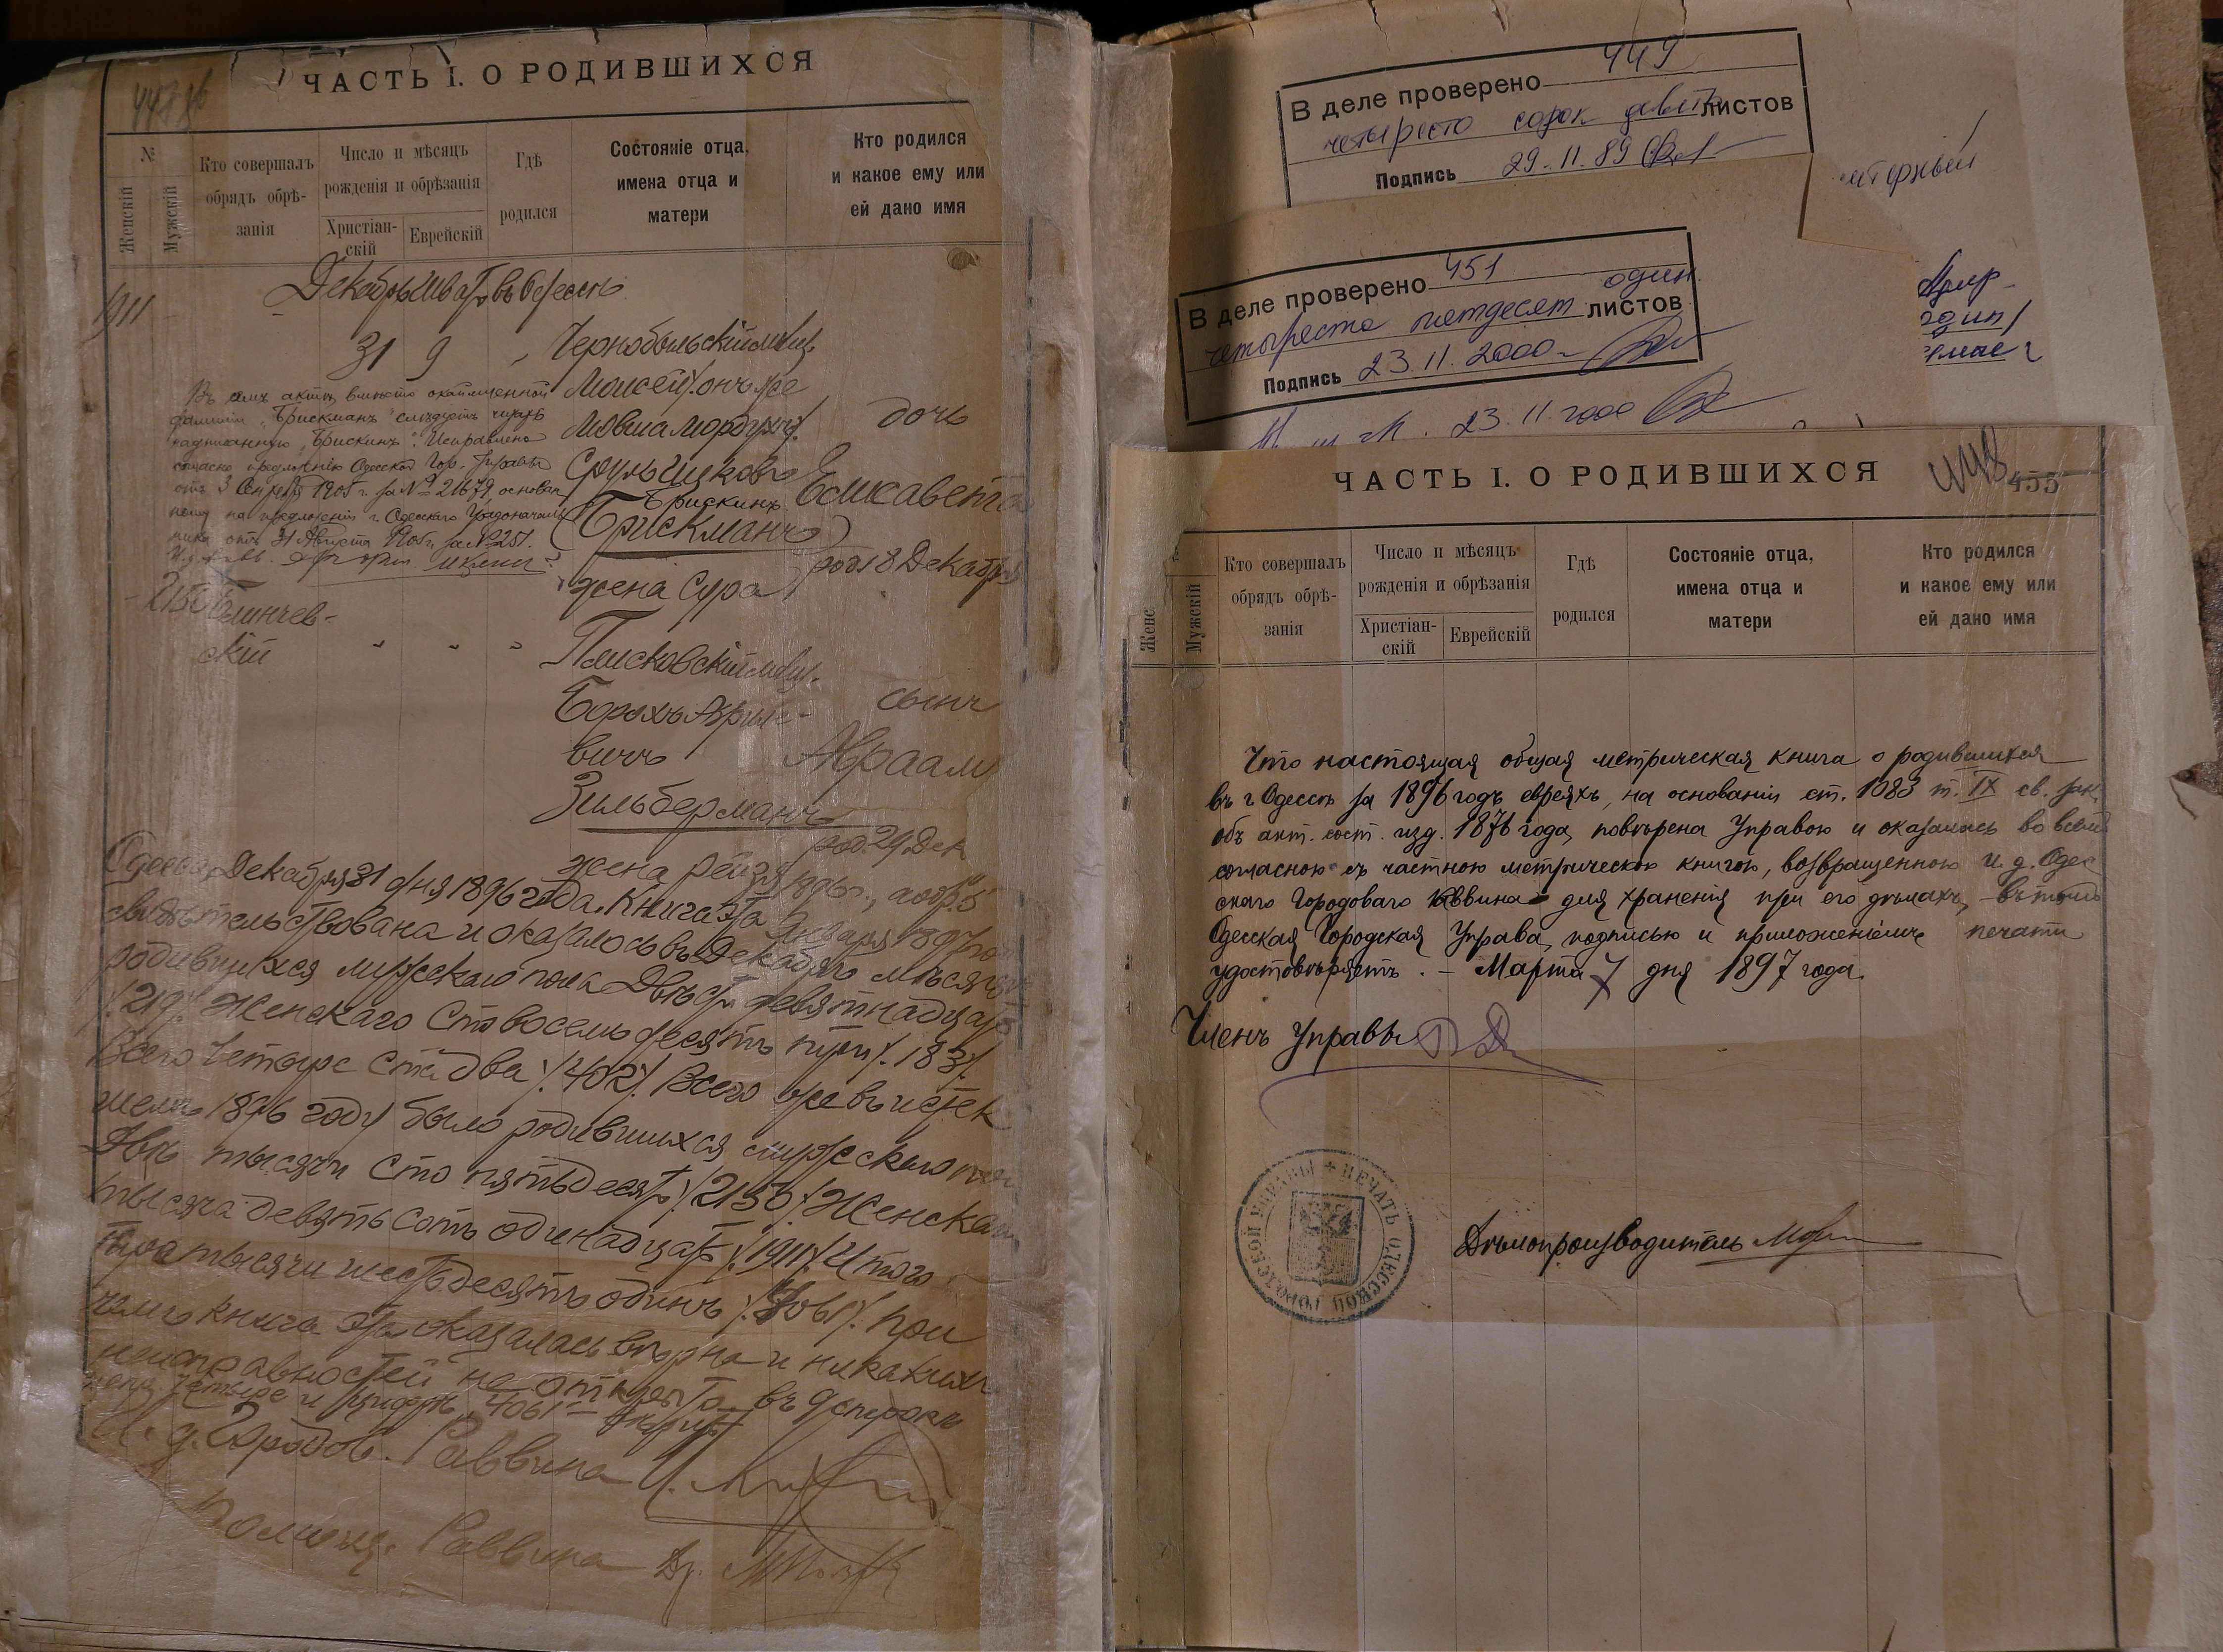 ЧАСТЬ I. О РОДИВШИХСЯ
№
Женскій
Мужскій
Кто совершалъ
обрядъ обрѣ-
занія
Число и мѣсяцъ
рожденія и обрѣзанія
Христіан-
скій
Еврейскій
Гдѣ
родился
Состояніе отца,
имена отца и
матери
Кто родился
и какое ему или
ей дано имя
1911
Декабрь Шватъ въ Одессѣ
31 9
Чернобыльскій мѣщ.
Моисей, онъ же
Мовша Мордух
Сруль Ицковъ
Брискинъ
(Брискманъ)
жена Сура
дочь
Елисавета
род. 18 Декабря
Въ семъ актѣ вмѣсто окаймленной
фамиліи „Брискманъ" слѣдуетъ читать
надписанную „Брискинъ". Исправлено
согласно предложенію Одесской Гор. Управы
отъ 3 1905 г. за № 21679, основан
ному на предложеніи г. Одесскаго Градоначаль
ника отъ 31 Августа 1905 г. за № 251.
2150
Блинчев-
скій
Плисковскій мѣщ.
Борохъ Аврум-
вичъ
Зильберманъ
жена Рейзя
сынъ
Авраам
род. 29 Дек
1896 г., а обр. 5
Января 1897 го
Одесса, Декабря 31 дня 1896 года. Книга эта
свидѣтельствована и оказалось въ Декабрѣ мѣсяцѣ
родившихся мужскаго пола Двѣсти девятнадцать
/.219/. Женскаго Сто восемьдесятъ три /.183/.
Всего Четыре ста два /.402/. Всего же въ истек
шемъ 1896 году было родившихся мужскаго пола
Двѣ тысячи сто пятьдесятъ /.2150/. Женскаго
тысяча девятьсотъ одинадцать /.1911/. Итого
тысячи шестьдесятъ одинъ /.4061/. При
чемъ книга эта оказалась вѣрна и никакихъ
неисправностей не открыто. въ 9 строкѣ
четыре и цифра 4061
И. д. Городов. Раввина
Помощ. Раввина Др.
В деле проверено 449
четыресто сорок девять листов
Подпись 29.11.89
В деле проверено 451
четыреста пятдесят один листов
Подпись 23.11.2000
23.11.2000
ЧАСТЬ I. О РОДИВШИХСЯ
448
455
Женс
Мужскій
Кто совершалъ
обрядъ обрѣ-
занія
Число и мѣсяцъ
рожденія и обрѣзанія
Христіан-
скій
Еврейскій
Гдѣ
родился
Состояніе отца,
имена отца и
матери
Кто родился
и какое ему или
ей дано имя
Что настоящая общая метрическая книга о родившихся
въ г. Одессѣ за 1896 годъ евреяхъ, на основаніи ст. 1083 т. IX св. зак.
объ акт. сост. изд. 1876 года, повѣрена Управою и оказалась во всемъ
согласною съ частною метрическою книгою, возвращенною И. д. Одес
скаго Городоваго Раввина для храненія при его дѣлахъ, въ томъ
Одесская Городская Управа, подписью и приложеніемъ печати
удостовѣряетъ. – Марта 7 дня 1897 года.
Членъ Управы
ПЕЧАТЬ ОДЕССКОЙ ГОРОДСКОЙ УПРАВЫ
Дѣлопроизводитель